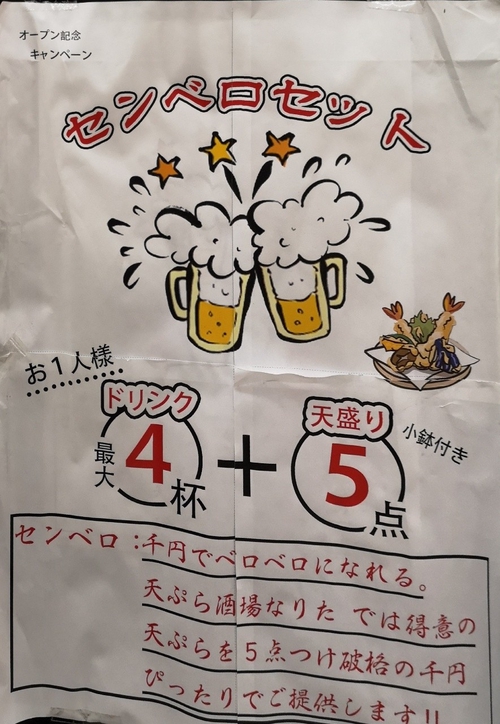 オープン記念
キャンペーン
センベロセット
お1人様
ドリンク
最大4杯
+
天盛り
5点
小鉢付き
センベロ：千円でベロベロになれる。
天ぷら酒場なりた では得意の
天ぷらを5点つけ破格の千円
ぴったりでご提供します!!